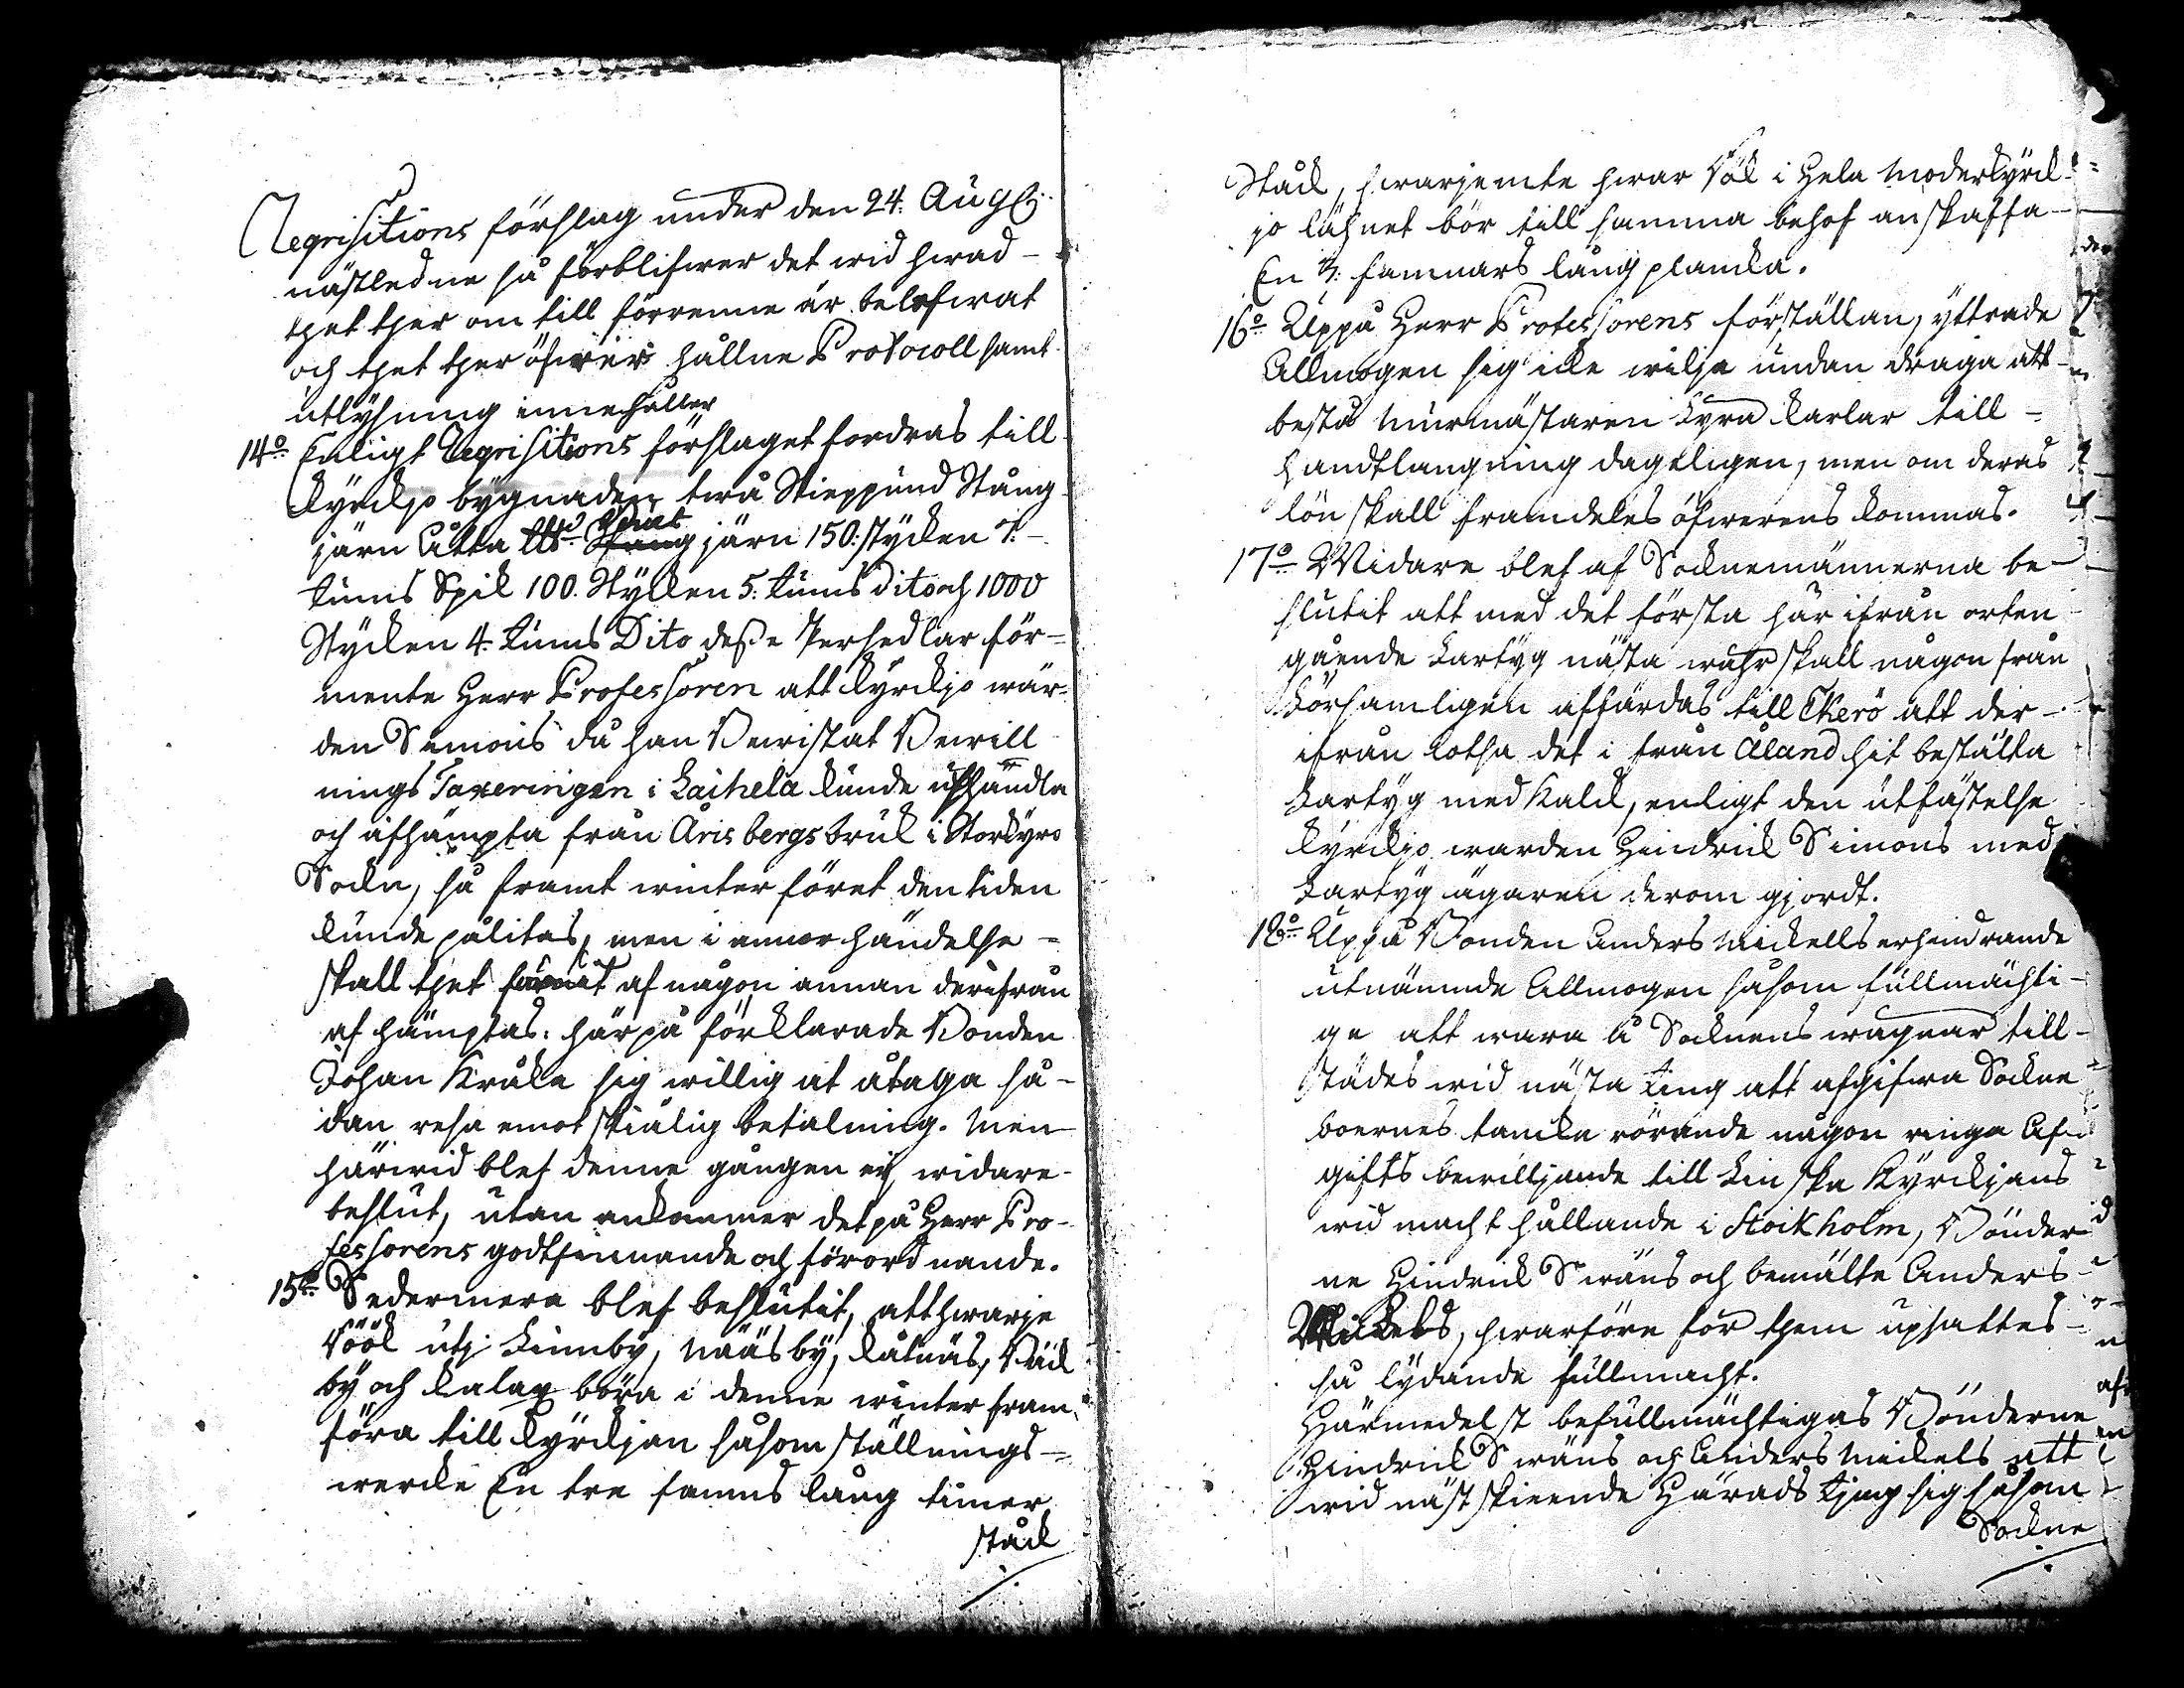 Reqvisitions förslag under den 24. Aug:
nästledne så förblifwer det wid hwad-
thet ther om till förrenne är belefwat
och thet ther öfwer hållne Protocoll samt
utlysning innehåller
14:o Enligt Reqvisitions förslaget fordras till
kyrckjo bygnaden twå Skieppund Stång
järn Åtta lb. järn 150: stycken 7.-
tums Spik 100. Stycken 5: tums dito och 1000
Stycken 4. tums Dito desse Persedlar för-
mente Herr Professoren att kyrckjo wär-
den Simons då han Bewistat Bewill
nings Taxeringen i Laihela kunde uphandla
och afhämpta från Årisbergs bruk i Storkyro
Sockn, så framt winter föret den tiden
kunde pålitas, men i annor händelse-
skall thet af någon annan derifrån
af hämptas: härpå förklarade Bonden
Johan Kråka sig willig at åtaga så-
dan resa emot skiälig betalning. Men
härwid blef denne gången ej widare-
beslut, utan ankommer det på Herr Pro-
fessorens godtfinnande och förordnande.
15:o Sedermera blef beslutit, att hwarje
Röök utj Finnby, Nääsby, kåtnäs, Wäck
by och kalax böra i denne winter fram
föra till kyrckjan såsom ställnings-
wercke En tre famns lång timer
stock
Stock, hwarjemte hwar Rök i Hela moderkyrck-
jo låhnet bör till samma behof anskaffa-
En 3: famnars lång plancka.
16:o Uppå Herr Professorens förställan, yttrade
Allmogen sig icke wilja undan draga att
bestå murmästaren Fyra karlar till-
handtlangning dageligen, men om deras
lön skall framdeles öfwerens kommas.
17:o Widare blef af Socknemännerna be-
slutit att med det första här ifrån orten
gående Fartyg nästa wåhr skall någon från
Församlingen affärdas till Ekerö att der-
ifrån lotsa det i från Åland hit bestälta
Fartyg med Kalck, enligt den utfästelse
kyrckjo warden Hindrick Simons med
Fartyg ägaren derom gjordt.
18:o Uppå Bonden Anders Mickells erhindrande
utnämnde Allmogen såsom fullmächti-
ge att wara å Socknens wägnar till-
städes wid nästa Ting att afgifwa Sockne
boernes tancka rörande någon ringa Af-
gifts bewilljande till Finska Kyrckjans
wid macht hållande i Stockholm, Bönder
ne Hindrick Swäns och bemälte Anders
Mickels, hwarföre för them upsattes-
så lydande fullmacht.
Härmedelst befullmächtigas Bönderne
Hindrick Swäns och Anders Mickels att
wid näst skieende Härads Tjing sig såsom
Sockne